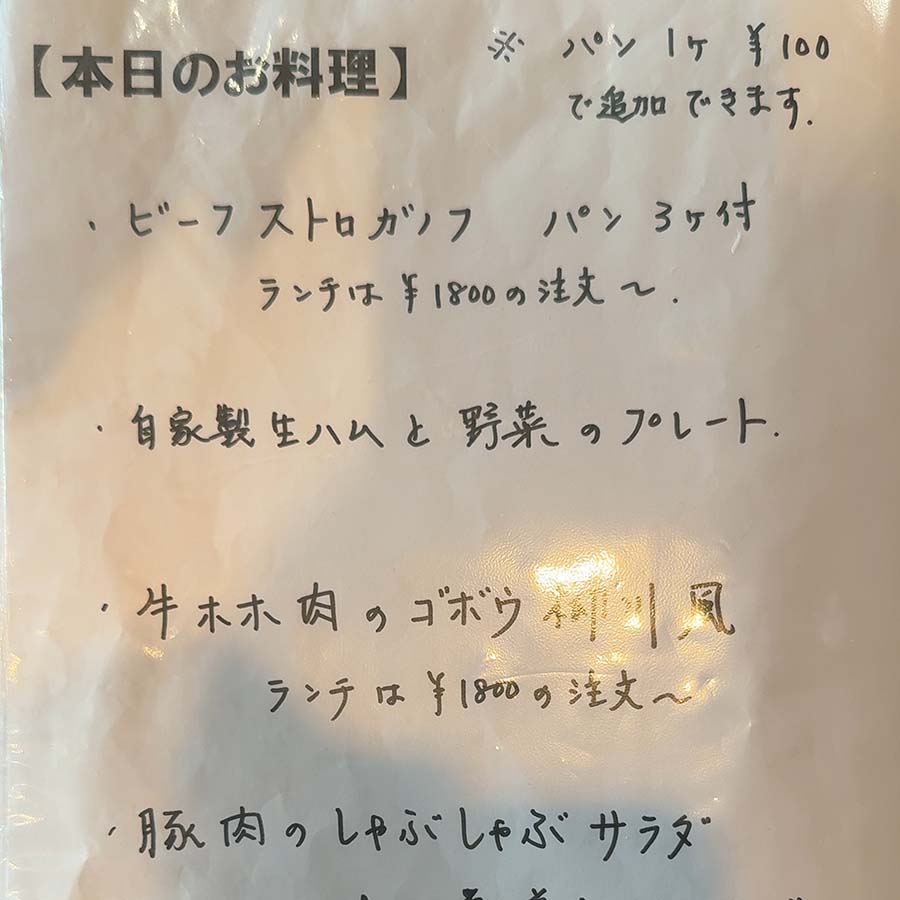 【本日のお料理】
※ パン 1ヶ ¥100
で追加できます.
・ビーフストロガノフ パン 3ヶ付
ランチは¥1800の注文〜.
・自家製生ハムと野菜のプレート.
・牛ホホ肉のゴボウ柳川風
ランチは¥1800の注文〜
・豚肉のしゃぶしゃぶサラダ